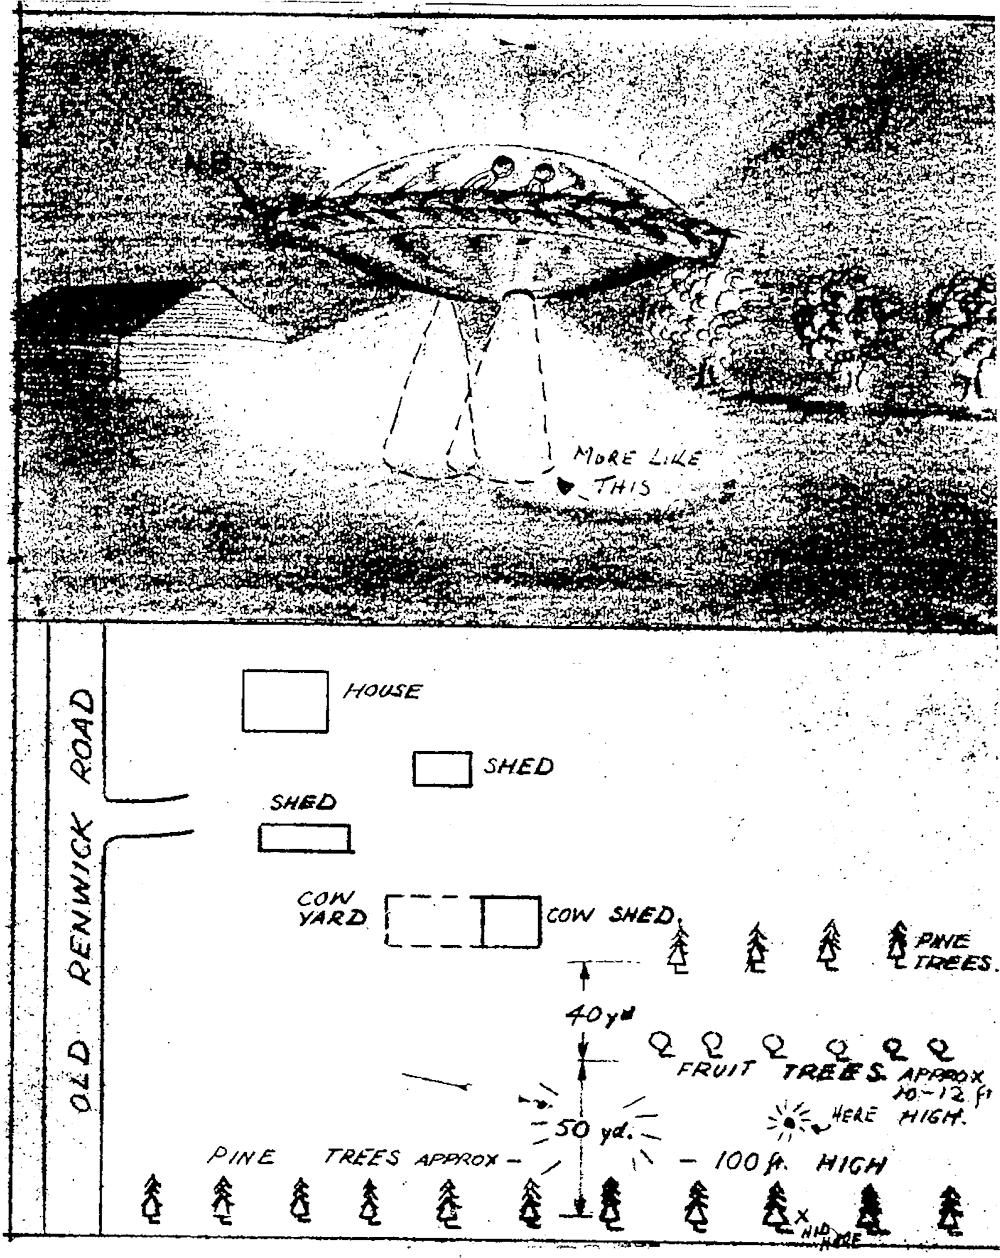 MORE LIKE
THIS
OLD RENWICK ROAD
HOUSE
SHED
SHED
COW
YARD
COW SHED.
PINE
TREES.
40 yd
FRUIT TREES. APPROX
10-12 ft
HIGH.
HERE
50 yd.
PINE TREES APPROX - - 100 ft. HIGH
X
HID
HERE